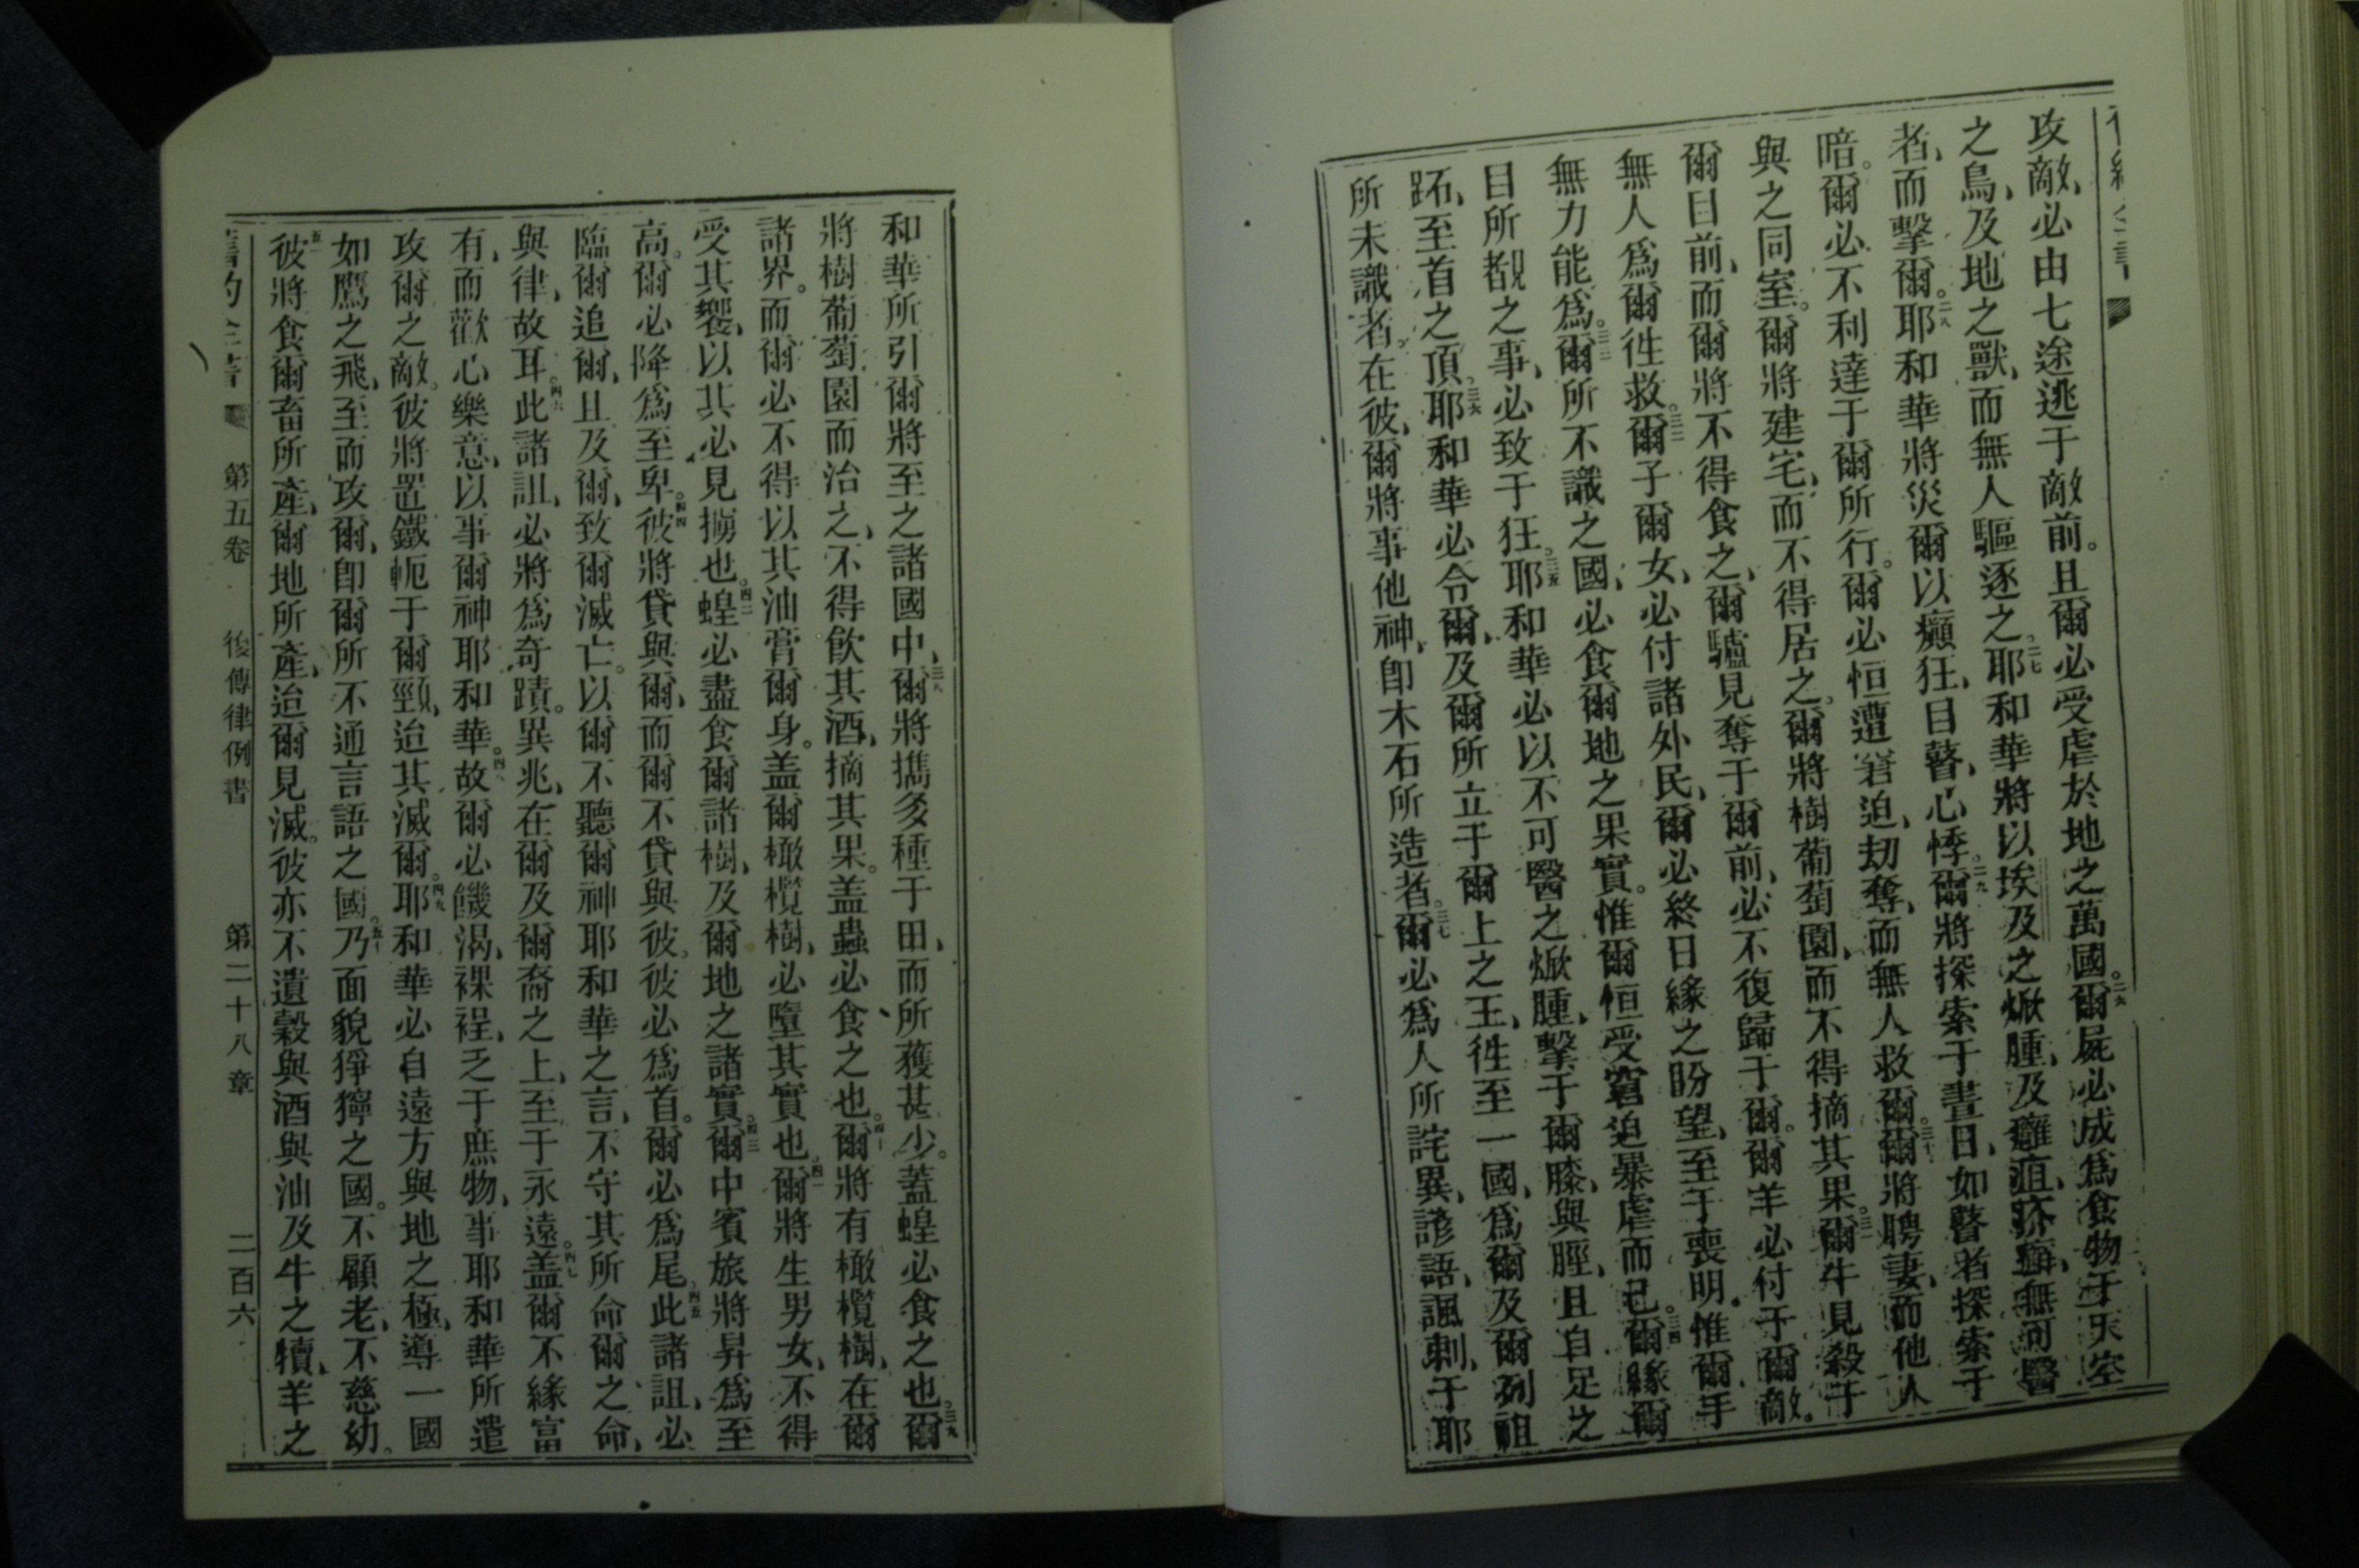 攻敵、必由七途逃于敵前。且爾必受虐於地之萬國。二六爾屍必成爲食物于天空
之鳥、及地之獸、而無人驅逐之。二七耶和華將以埃及之焮腫、及癰疽、疥癩、無可醫
者、而擊爾。二八耶和華將災爾以癲狂、目瞽、心悸。二九爾將探索于晝日、如瞽者探索于
暗。爾必不利達于爾所行。爾必恒遭窘迫、刧奪、而無人救爾。三十爾將聘妻、而他人
與之同室。爾將建宅、而不得居之。爾將樹葡萄園、而不得摘其果。三一爾牛見殺于
爾目前、而爾將不得食之、爾驢見奪于爾前、必不復歸于爾。爾羊必付于爾敵。
無人爲爾徃救。三二爾子爾女、必付諸外民、爾必終日緣之盼望、至于喪明。惟爾手
無力能爲。三三爾所不識之國、必食爾地之果實。惟爾恒受窘迫暴虐而已。三四爾緣爾
目所覩之事、必致于狂。三五耶和華必以不可醫之焮腫、擊于爾膝、與脛、且自足之
跖、至首之頂。三六耶和華必令爾、及爾所立于爾上之王、徃至一國、爲爾及爾列祖
所未識者。在彼、爾將事他神、卽木石所造者。三七爾必爲人所詫異、諺語、諷刺、于耶
和華所引爾將至之諸國中、三八爾將擕多種于田、而所獲甚少。蓋蝗必食之也。三九爾
將樹葡萄園而治之、不得飲其酒、摘其果。盖蟲必食之也。四十爾將有橄欖樹、在爾
諸界。而爾必不得以其油膏爾身。盖爾橄欖樹、必墮其實也。四一爾將生男女、不得
受其饗、以其必見擄也。四二蝗必盡食爾諸樹、及爾地之諸實。四三爾中賓旅將昇爲至
高。爾必降爲至卑。四四彼將貸與爾、而爾不貸與彼。彼必爲首。爾必爲尾。四五此諸詛、必
臨爾追爾、且及爾、致爾滅亡。以爾不聽爾神耶和華之言、不守其所命爾之命、
與律、故耳。四六此諸詛、必將爲奇蹟。異兆、在爾及爾裔之上、至于永遠。四七盖爾不緣富
有、而歡心樂意、以事爾神耶和華。四八故爾必饑渴、裸裎、乏于庶物、事耶和華所遣
攻爾之敵。彼將置鐵軛于爾頸、迨其滅爾。四九耶和華必自遠方與地之極、導一國
如鷹之飛、至而攻爾、卽爾所不通言語之國。五十乃面貌猙獰之國。不顧老、不慈幼。
五一彼將食爾畜所產、爾地所產、迨爾見滅。彼亦不遺穀與酒與油及牛之犢、羊之
舊約全書 第五卷 復傳律例書 第二十八章 二百六